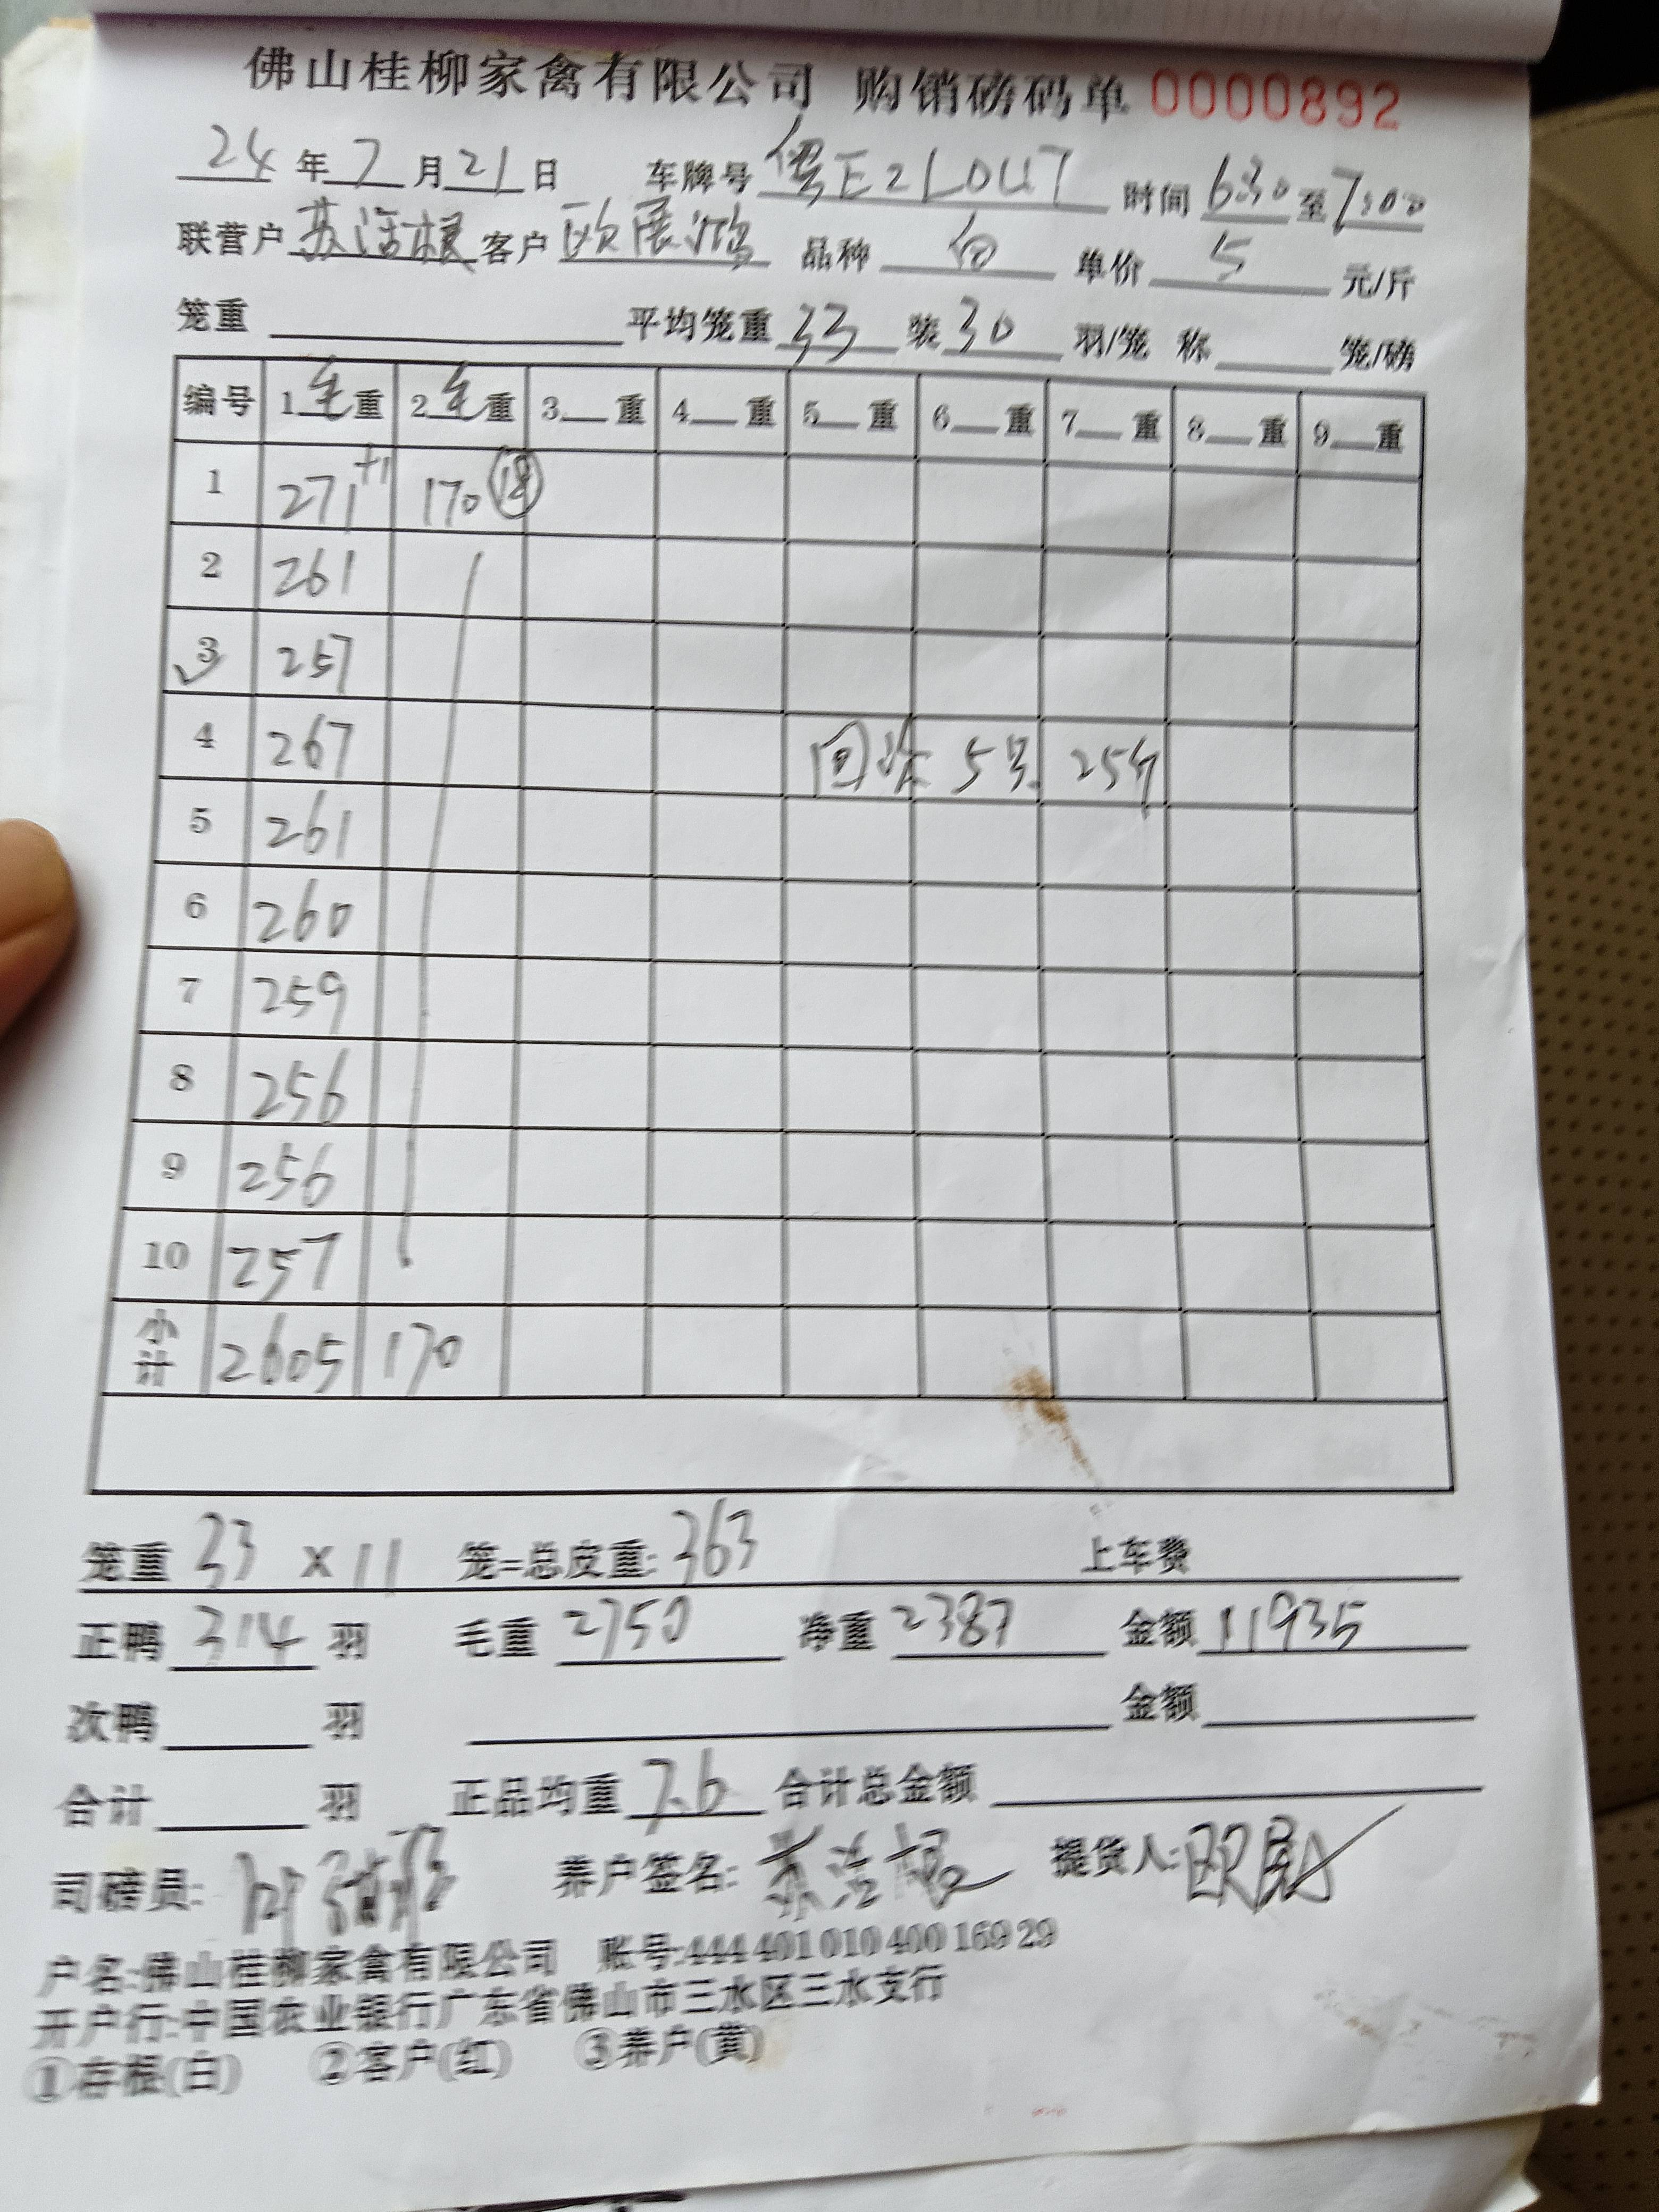 佛山桂柳家禽有限公司 购销磅码单 0000892
24 年 7 月 21 日 车牌号 粤E21047 时间 6:30 至 7:00
联营户 苏洁根 客户 欧展鸿 品种 白 单价 5 元/斤
笼重 平均笼重 33 装 30 羽/笼 称 笼/磅
编号 1 毛 重 2 毛 重 3 重 4 重 5 重 6 重 7 重 8 重 9 重
1 271 +1 170 18
2 261
3 257
4 267 回 5号 254
5 261
6 260
7 259
8 256
9 256
10 257
小计 2605 170
笼重 33 x 11 笼=总皮重: 363 上车费
正鸭 314 羽 毛重 2750 净重 2387 金额 11935
次鸭 羽 金额
合计 羽 正品均重 7.6 合计总金额
司磅员: 养户签名: 苏洁根 提货人: 欧
户名:佛山桂柳家禽有限公司 账号:444 401 010 400 169 29
开户行:中国农业银行广东省佛山市三水区三水支行
①存根(白) ②客户(红) ③养户(黄)